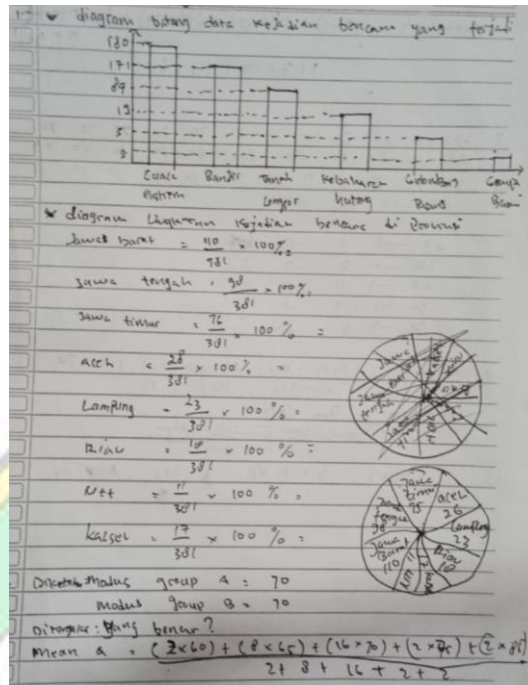 diagram batang data kejadian bencana yang terjadi
180
171
89
15
5
3
Cuaca Banjir Tanah Kebakaran Gelombang Gempa
Longsor hutang Bumi
diagram Lingkaran kejadian bencana di Provinsi
Jawa barat = 110/381 × 100%
Jawa tengah = 98/381 × 100%
Jawa timur = 76/381 × 100% =
Aceh = 28/381 × 100% =
Lampung = 23/381 × 100% =
Riau = 18/381 × 100% =
Ntt = 11/381 × 100% =
kalsel = 17/381 × 100% =
Jawa timur 75
aceh 26
Lampung 23
Riau 18
17
11 NTT
Jawa Barat 110
tengah 98
Diketahui: Modus group A = 70
modus group B = 70
Ditanya: yang benar?
mean a = (2×60) + (8×65) + (16×70) + (2×75) + (2×85)
2+ 8 + 16 + 2 + 2